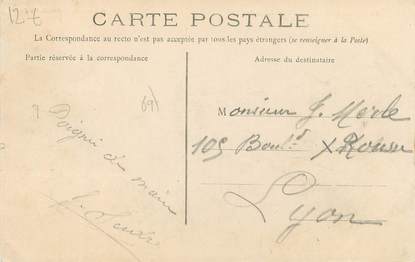 12-€
CARTE POSTALE
La Correspondance au recto n'est pas acceptée par tous les pays étrangers (se renseigner à la Poste)
Partie réservée à la correspondance
Adresse du destinataire
69)
Poigné de main
Monsieur J. Merle
109 Boulᵈ X Rousse
Lyon